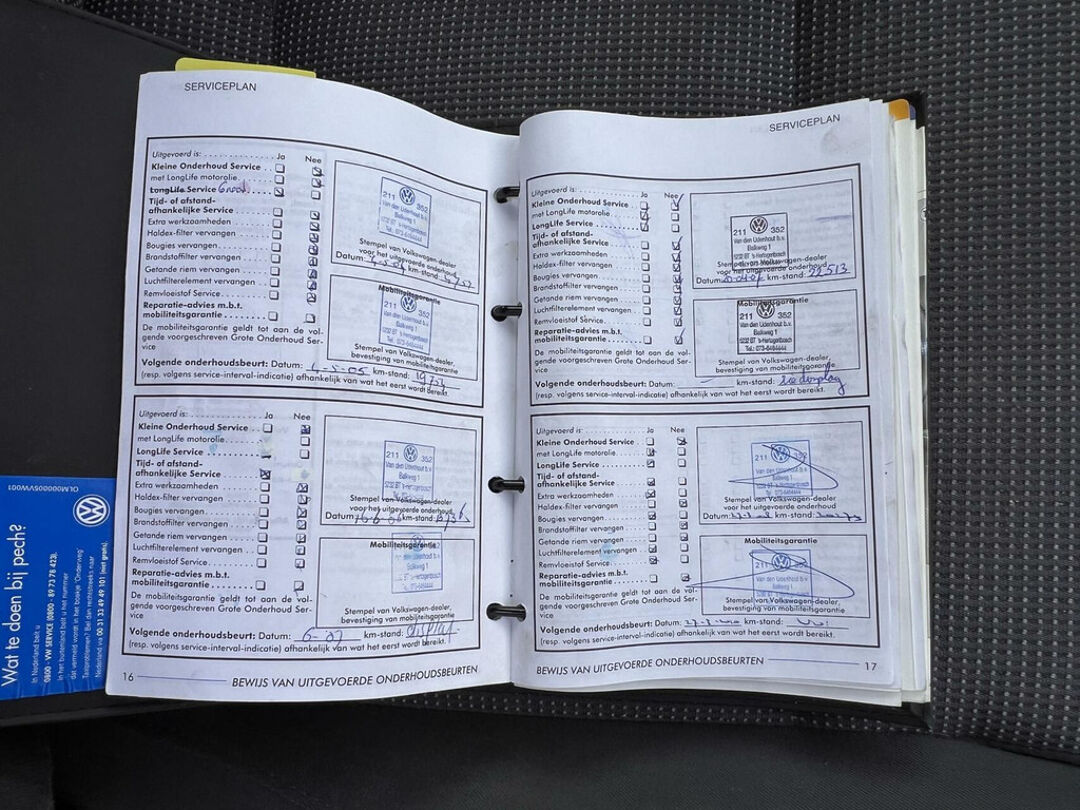 SERVICEPLAN
Uitgevoerd is: Ja Nee
Kleine Onderhoud Service
met LongLife motorolie
LongLife Service Groot
Tijd- of afstand-
afhankelijke Service
Extra werkzaamheden
Haldex-filter vervangen
Bougies vervangen
Brandstoffilter vervangen
Getande riem vervangen
Luchtfilterelement vervangen
Remvloeistof Service
Reparatie-advies m.b.t.
mobiliteitsgarantie
211 352
Van den Udenhout b.v.
Balkweg 1
5232 BT 's-Hertogenbosch
Tel.: 073-6464444
Stempel van Volkswagen-dealer
voor het uitgevoerde onderhoud
Datum: km-stand:
Mobiliteitsgarantie
211 352
Van den Udenhout b.v.
Balkweg 1
5232 BT 's-Hertogenbosch
Tel.: 073-6464444
Stempel van Volkswagen-dealer,
bevestiging van mobiliteitsgarantie
De mobiliteitsgarantie geldt tot aan de vol-
gende voorgeschreven Grote Onderhoud Ser-
vice
Volgende onderhoudsbeurt: Datum: 4-5-05 km-stand: 19754
(resp. volgens service-interval-indicatie) afhankelijk van wat het eerst wordt bereikt.
Uitgevoerd is: Ja Nee
Kleine Onderhoud Service
met LongLife motorolie
LongLife Service
Tijd- of afstand-
afhankelijke Service
Extra werkzaamheden
Haldex-filter vervangen
Bougies vervangen
Brandstoffilter vervangen
Getande riem vervangen
Luchtfilterelement vervangen
Remvloeistof Service
Reparatie-advies m.b.t.
mobiliteitsgarantie
211 352
Van den Udenhout b.v.
Balkweg 1
5232 BT 's-Hertogenbosch
Stempel van Volkswagen-dealer
voor het uitgevoerde onderhoud
Datum: km-stand:
Mobiliteitsgarantie
Stempel van Volkswagen-dealer,
bevestiging van mobiliteitsgarantie
De mobiliteitsgarantie geldt tot aan de vol-
gende voorgeschreven Grote Onderhoud Ser-
vice
Volgende onderhoudsbeurt: Datum: 6-07 km-stand: display
(resp. volgens service-interval-indicatie) afhankelijk van wat het eerst wordt bereikt.
16 BEWIJS VAN UITGEVOERDE ONDERHOUDSBEURTEN
SERVICEPLAN
Uitgevoerd is: Ja Nee
Kleine Onderhoud Service
met LongLife motorolie
LongLife Service
Tijd- of afstand-
afhankelijke Service
Extra werkzaamheden
Haldex-filter vervangen
Bougies vervangen
Brandstoffilter vervangen
Getande riem vervangen
Luchtfilterelement vervangen
Remvloeistof Service
Reparatie-advies m.b.t.
mobiliteitsgarantie
211 352
Van den Udenhout b.v.
Balkweg 1
5232 BT 's-Hertogenbosch
Stempel van Volkswagen-dealer
voor het uitgevoerde onderhoud
Datum: km-stand: 22513
Mobiliteitsgarantie
211 352
Van den Udenhout b.v.
Balkweg 1
5232 BT 's-Hertogenbosch
Tel.: 073-6464444
Stempel van Volkswagen-dealer,
bevestiging van mobiliteitsgarantie
De mobiliteitsgarantie geldt tot aan de vol-
gende voorgeschreven Grote Onderhoud Ser-
vice
Volgende onderhoudsbeurt: Datum: km-stand:
(resp. volgens service-interval-indicatie) afhankelijk van wat het eerst wordt bereikt.
Uitgevoerd is: Ja Nee
Kleine Onderhoud Service
met LongLife motorolie
LongLife Service
Tijd- of afstand-
afhankelijke Service
Extra werkzaamheden
Haldex-filter vervangen
Bougies vervangen
Brandstoffilter vervangen
Getande riem vervangen
Luchtfilterelement vervangen
Remvloeistof Service
Reparatie-advies m.b.t.
mobiliteitsgarantie
211 352
Van den Udenhout b.v.
Balkweg 1
5232 BT 's-Hertogenbosch
Stempel van Volkswagen-dealer
voor het uitgevoerde onderhoud
Datum: km-stand:
Mobiliteitsgarantie
211
Van den Udenhout b.v.
Balkweg 1
Stempel van Volkswagen-dealer,
bevestiging van mobiliteitsgarantie
De mobiliteitsgarantie geldt tot aan de vol-
gende voorgeschreven Grote Onderhoud Ser-
vice
Volgende onderhoudsbeurt: Datum: km-stand:
(resp. volgens service-interval-indicatie) afhankelijk van wat het eerst wordt bereikt.
BEWIJS VAN UITGEVOERDE ONDERHOUDSBEURTEN 17
OLM000005VW001
Wat te doen bij pech?
In Nederland belt u
0800 - VW SERVICE (0800 - 89 73 78 423),
in het buitenland belt u het nummer
dat vermeld wordt in het boekje 'Onderweg'
Taxiproblemen? Bel dan rechtstreeks naar
Nederland via 00 31 33 49 49 101 (niet gratis).